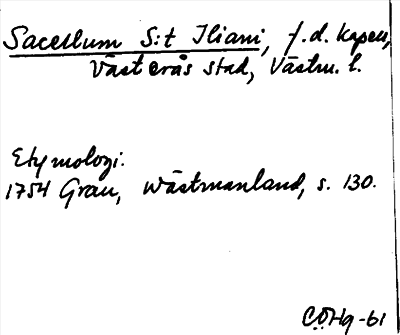 Sacellum S:t Iliani, f.d. kapell,
Västerås stad, Västm. l.
Etymologi:
1754 Grau, Wästmanland, s. 130.
CÖHg -61